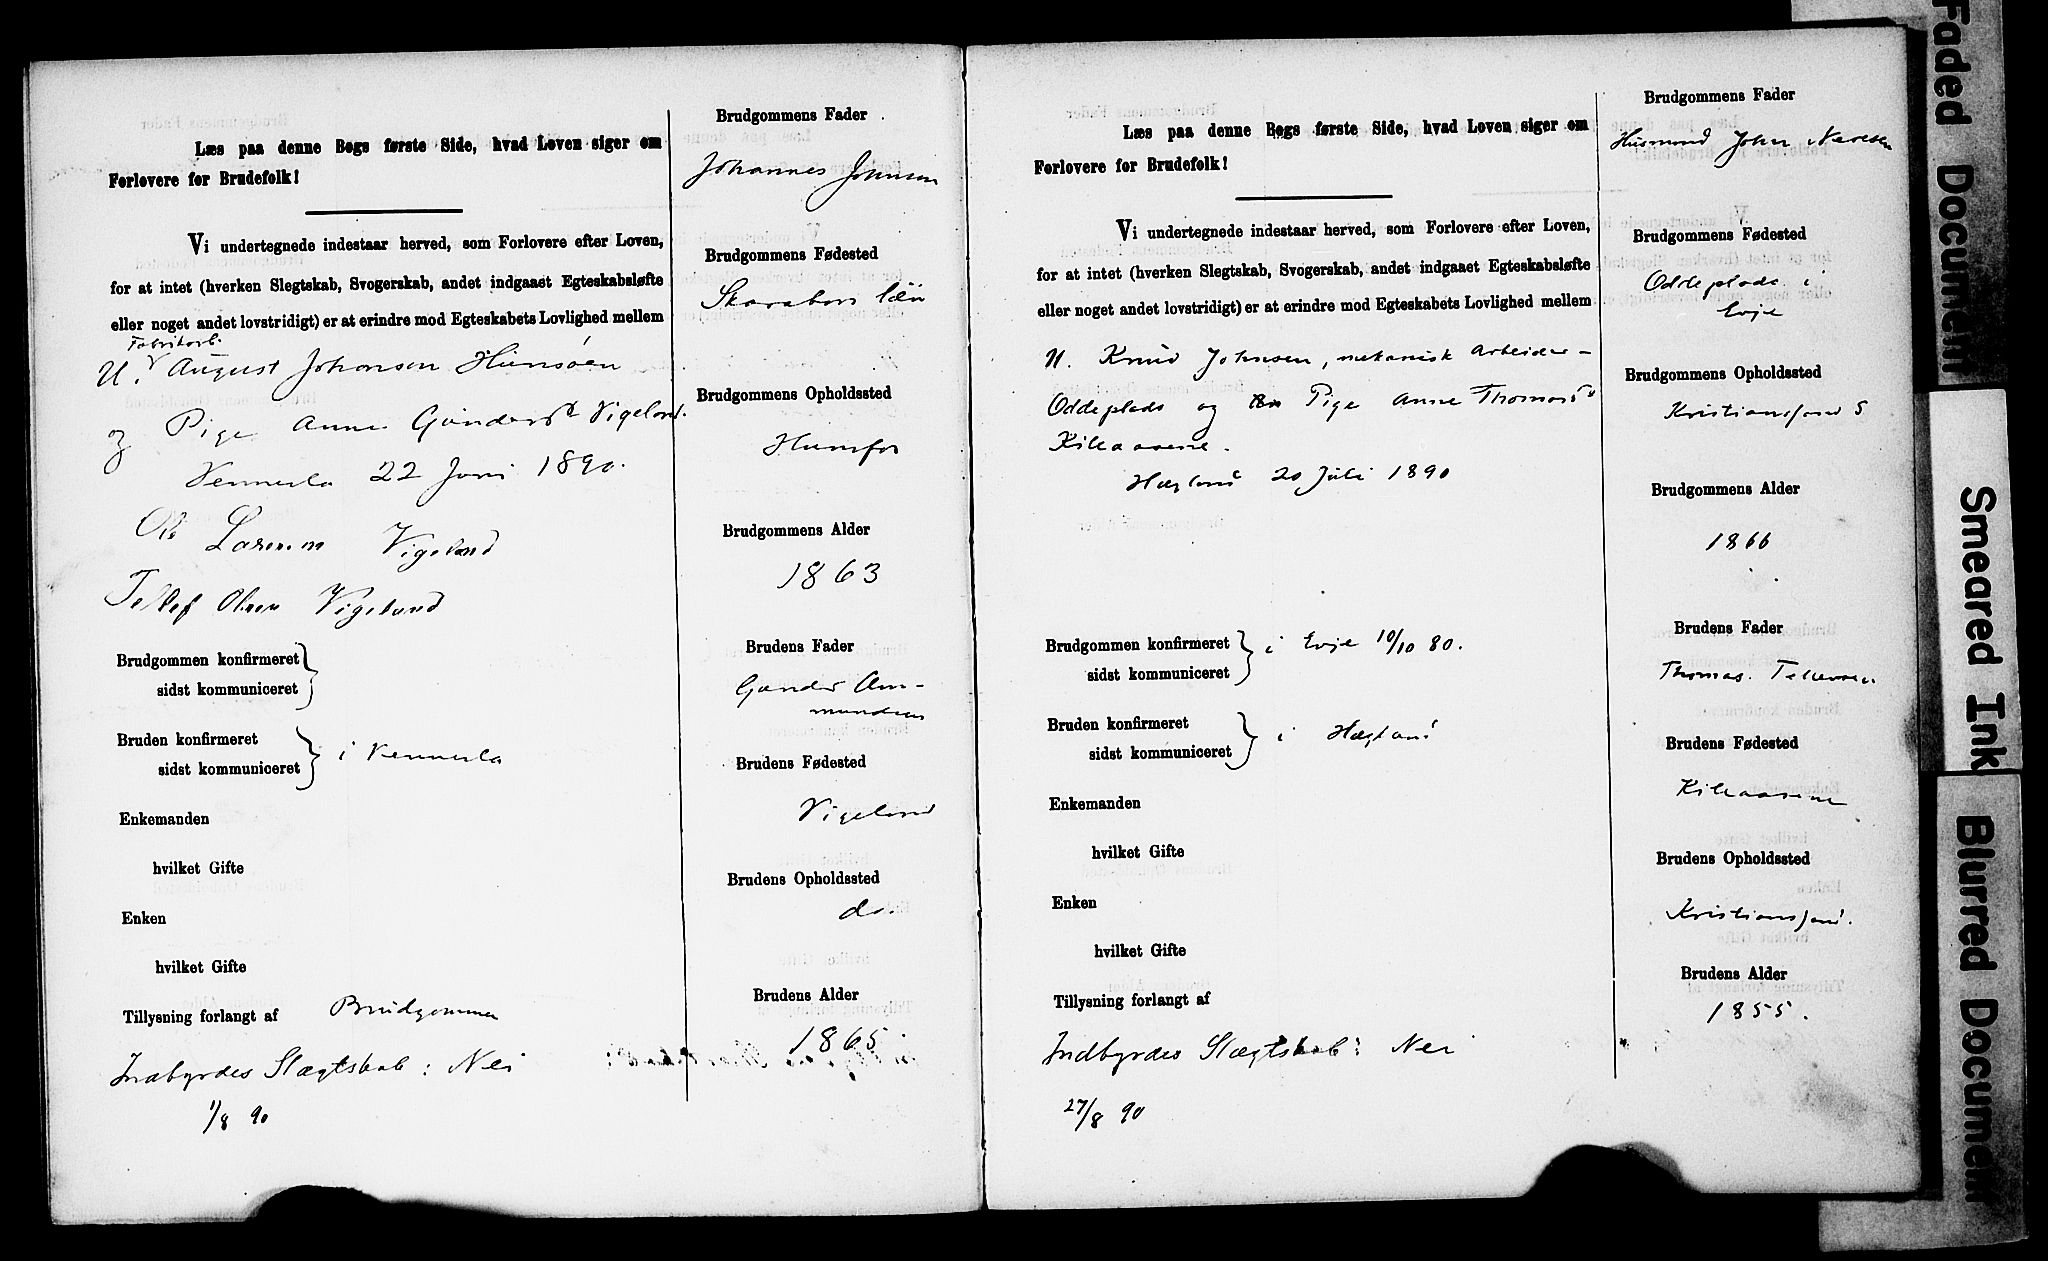 Læs paa denne Bogs første Side, hvad Loven siger om
Forlovere for Brudefolk!
Vi undertegnede indestaar herved, som Forlovere efter Loven,
for at intet (hverken Slegtskab, Svogerskab, andet indgaaet Egteskabsløfte
eller noget andet lovstridigt) er at erindre mod Egteskabets Lovlighed mellem
Fabrikarb.
U. August Johansen Hunsøen
og Pige Anne Gundersd Vigeland.
Vennesla 22 Juni 1890.
Ole Larsen Vigeland
Tellef Olsen Vigeland
Brudgommen konfirmeret
sidst kommuniceret
Bruden konfirmeret
sidst kommuniceret
i Vennesla
Enkemanden
hvilket Gifte
Enken
hvilket Gifte
Tillysning forlangt af Brudgommen
Indbyrdes Slægtskab: Nei
1/8 90
Brudgommens Fader
Johannes Johnson
Brudgommens Fødested
Skarabors län
Brudgommens Opholdssted
Hunsfos
Brudgommens Alder
1863
Brudens Fader
Gunder Am-
mundsen
Brudens Fødested
Vigeland
Brudens Opholdssted
do.
Brudens Alder
1865.
Læs paa denne Bogs første Side, hvad Loven siger om
Forlovere for Brudefolk!
Vi undertegnede indestaar herved, som Forlovere efter Loven,
for at intet (hverken Slegtskab, Svogerskab, andet indgaaet Egteskabsløfte
eller noget andet lovstridigt) er at erindre mod Egteskabets Lovlighed mellem
U. Knud Johnsen, mekanisk Arbeider -
Oddeplads og Pige Anne Thomasd
Kileaasene.
Hægland 20 Juli 1890
Brudgommen konfirmeret
sidst kommuniceret
i Evje 10/10 80.
Bruden konfirmeret
sidst kommuniceret
i Hægland
Enkemanden
hvilket Gifte
Enken
hvilket Gifte
Tillysning forlangt af
Indbyrdes Slægtskab: Nei
27/8 90
Brudgommens Fader
Husmand John
Brudgommens Fødested
Oddeplads i
Evje
Brudgommens Opholdssted
Kristianssand S
Brudgommens Alder
1866
Brudens Fader
Thomas
Brudens Fødested
Kileaasene
Brudens Opholdssted
Kristianssand.
Brudens Alder
1855.
Faded Document
Smeared Ink
Blurred Document